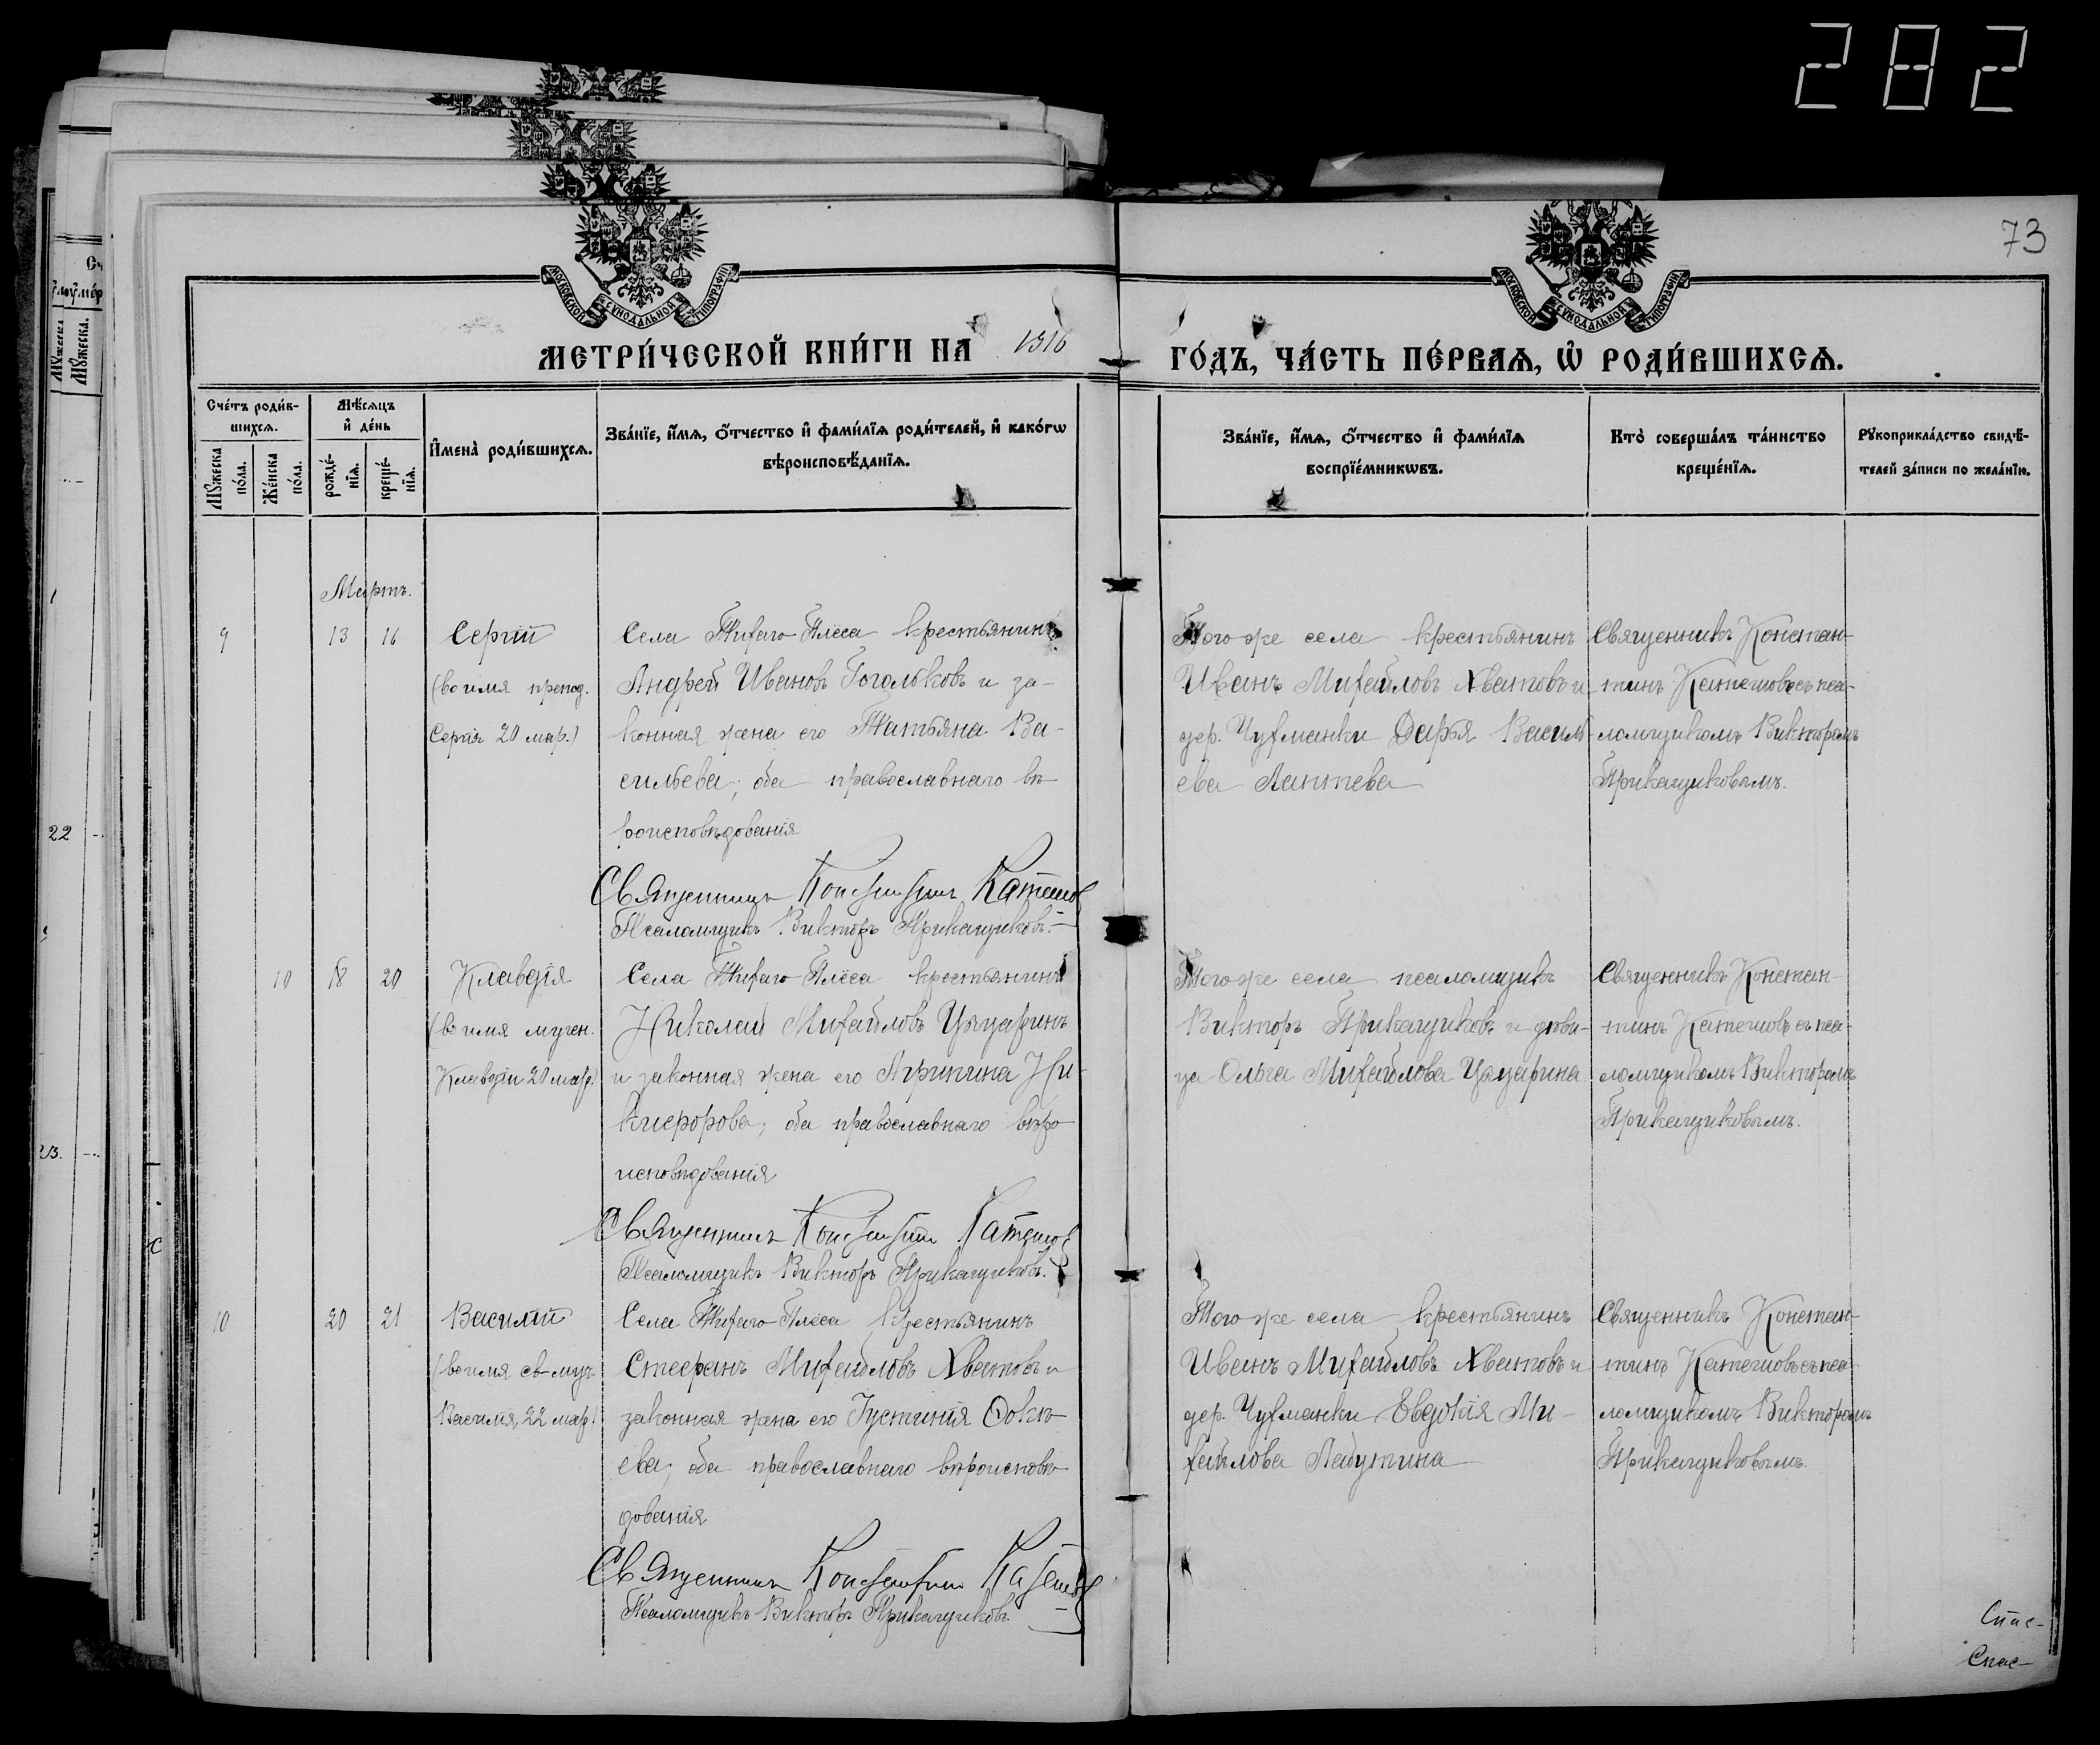 282
73
МОСКОВСКОЙ СѴНОДАЛЬНОЙ ТИПОГРАФІИ
МОСКОВСКОЙ СѴНОДАЛЬНОЙ ТИПОГРАФІИ
МЕТРИ́ЧЕСКОЙ КНИ́ГИ НА 1916 ГО́ДЪ, ЧА́СТЬ ПЕ́РВАѦ, Ѡ҆ РОДИ́ВШИХСѦ.
Сче́тъ роди́в-
шихсѧ.
Мꙋ́жеска
по́ла.
Же́нска
по́ла.
Мѣ́сѧцъ
и҆ де́нь
рожде́-
нїѧ.
креще́-
нїѧ.
И҆мена̀ роди́вшихсѧ.
Зва́нїе, и҆́мѧ, ѻ҆́тчество и҆ фами́лїѧ роди́телей, и҆ како́гѡ
вѣроисповѣ́данїѧ.
Зва́нїе, и҆́мѧ, ѻ҆́тчество и҆ фами́лїѧ
воспрїе́мникѡвъ.
Кто̀ соверша́лъ та́инство
креще́нїѧ.
Рꙋкоприкла́дство свидѣ́-
телей за́писи по жела́нїю.
Мартъ.
9 13 16
Сергій
(во имя препод.
Сергія 20 мар.)
Села Тихаго-Плёса крестьянинъ
Андрей Ивановъ Гогольковъ и за-
конная жена его Татьяна Ва-
сильева; оба православнаго вѣ-
роисповѣдованія
Священникъ Константинъ Катешов
Псаломщикъ Викторъ Прикащиковъ.
Того-же села крестьянинъ
Иванъ Михайловъ Хватовъ и
дер. Чухманки Дарья Василь-
ева Лаптева
Священникъ Констан-
тинъ Катешовъ съ пса-
ломщикомъ Викторомъ
Прикащиковымъ.
10 18 20
Клавдія
(во имя мучен.
Клавдіи 20 мар.)
Села Тихаго-Плёса крестьянинъ
Николай Михайловъ Цацаринъ
и законная жена его Агрипина Ни-
кифорова; оба православнаго вѣро-
исповѣдованія
Священникъ Константинъ Катешов
Псаломщикъ Викторъ Прикащиковъ.
Того-же села псаломщикъ
Викторъ Прикащиковъ и дѣви-
ца Ольга Михайлова Цацарина
Священникъ Констан-
тинъ Катешовъ съ пса-
ломщикомъ Викторомъ
Прикащиковымъ.
10 20 21
Василій
(во имя св-муч.
Василія, 22 мар.)
Села Тихаго-Плёса крестьянинъ
Стефанъ Михайловъ Хватовъ и
законная жена его Густинія Фокѣ-
ева; оба православнаго вѣроисповѣ-
дованія
Священникъ Константинъ Катешов
Псаломщикъ Викторъ Прикащиковъ.
Того-же села крестьянинъ
Иванъ Михайловъ Хватовъ и
дер. Чухманки Евдокія Ми-
хайлова Лабутина
Священникъ Констан-
тинъ Катешовъ съ пса-
ломщикомъ Викторомъ
Прикащиковымъ.
Спас-
Спас-
22
23.